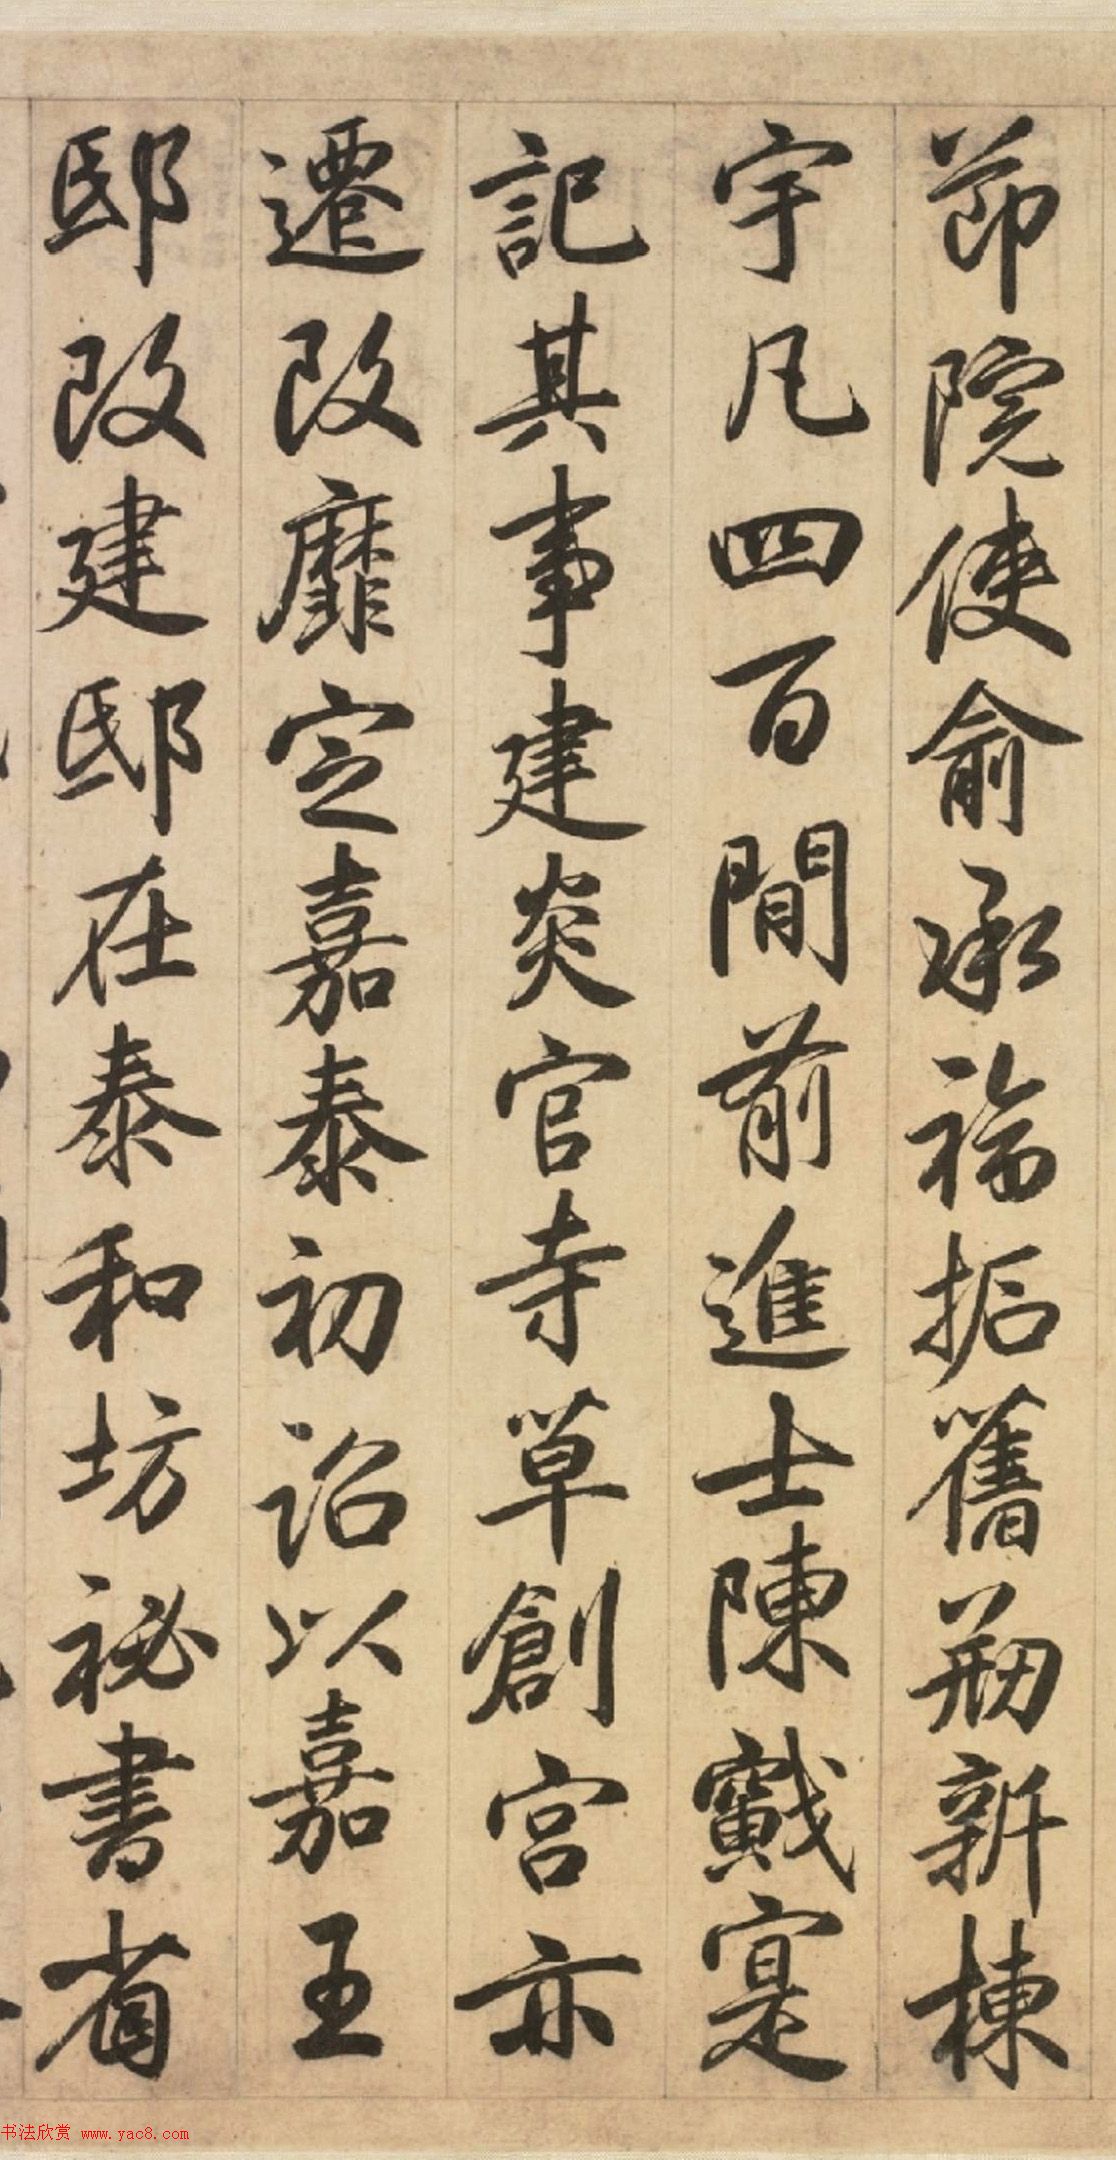 節院使俞承福振舊剏新棟
宇凡四百間前進士陳戩寔
記其事建炎官寺草創宮亦
遷改靡定嘉泰初詔以嘉王
邸改建邸在泰和坊祕書省
书法欣赏 www.yac8.com